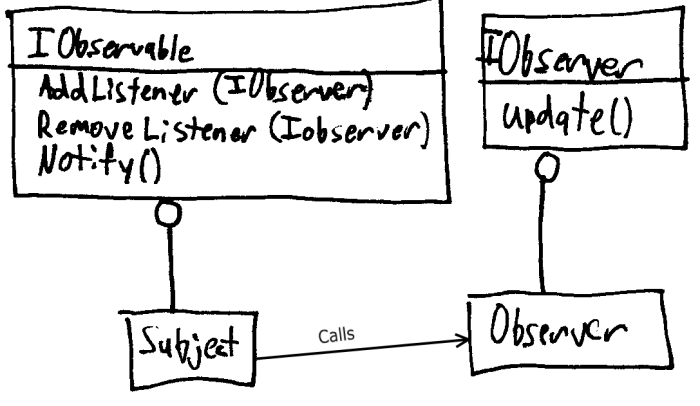 IObservable
AddListener (IObserver)
Remove Listener (Iobserver)
Notify()
IObserver
update()
Subject
Calls
Observer